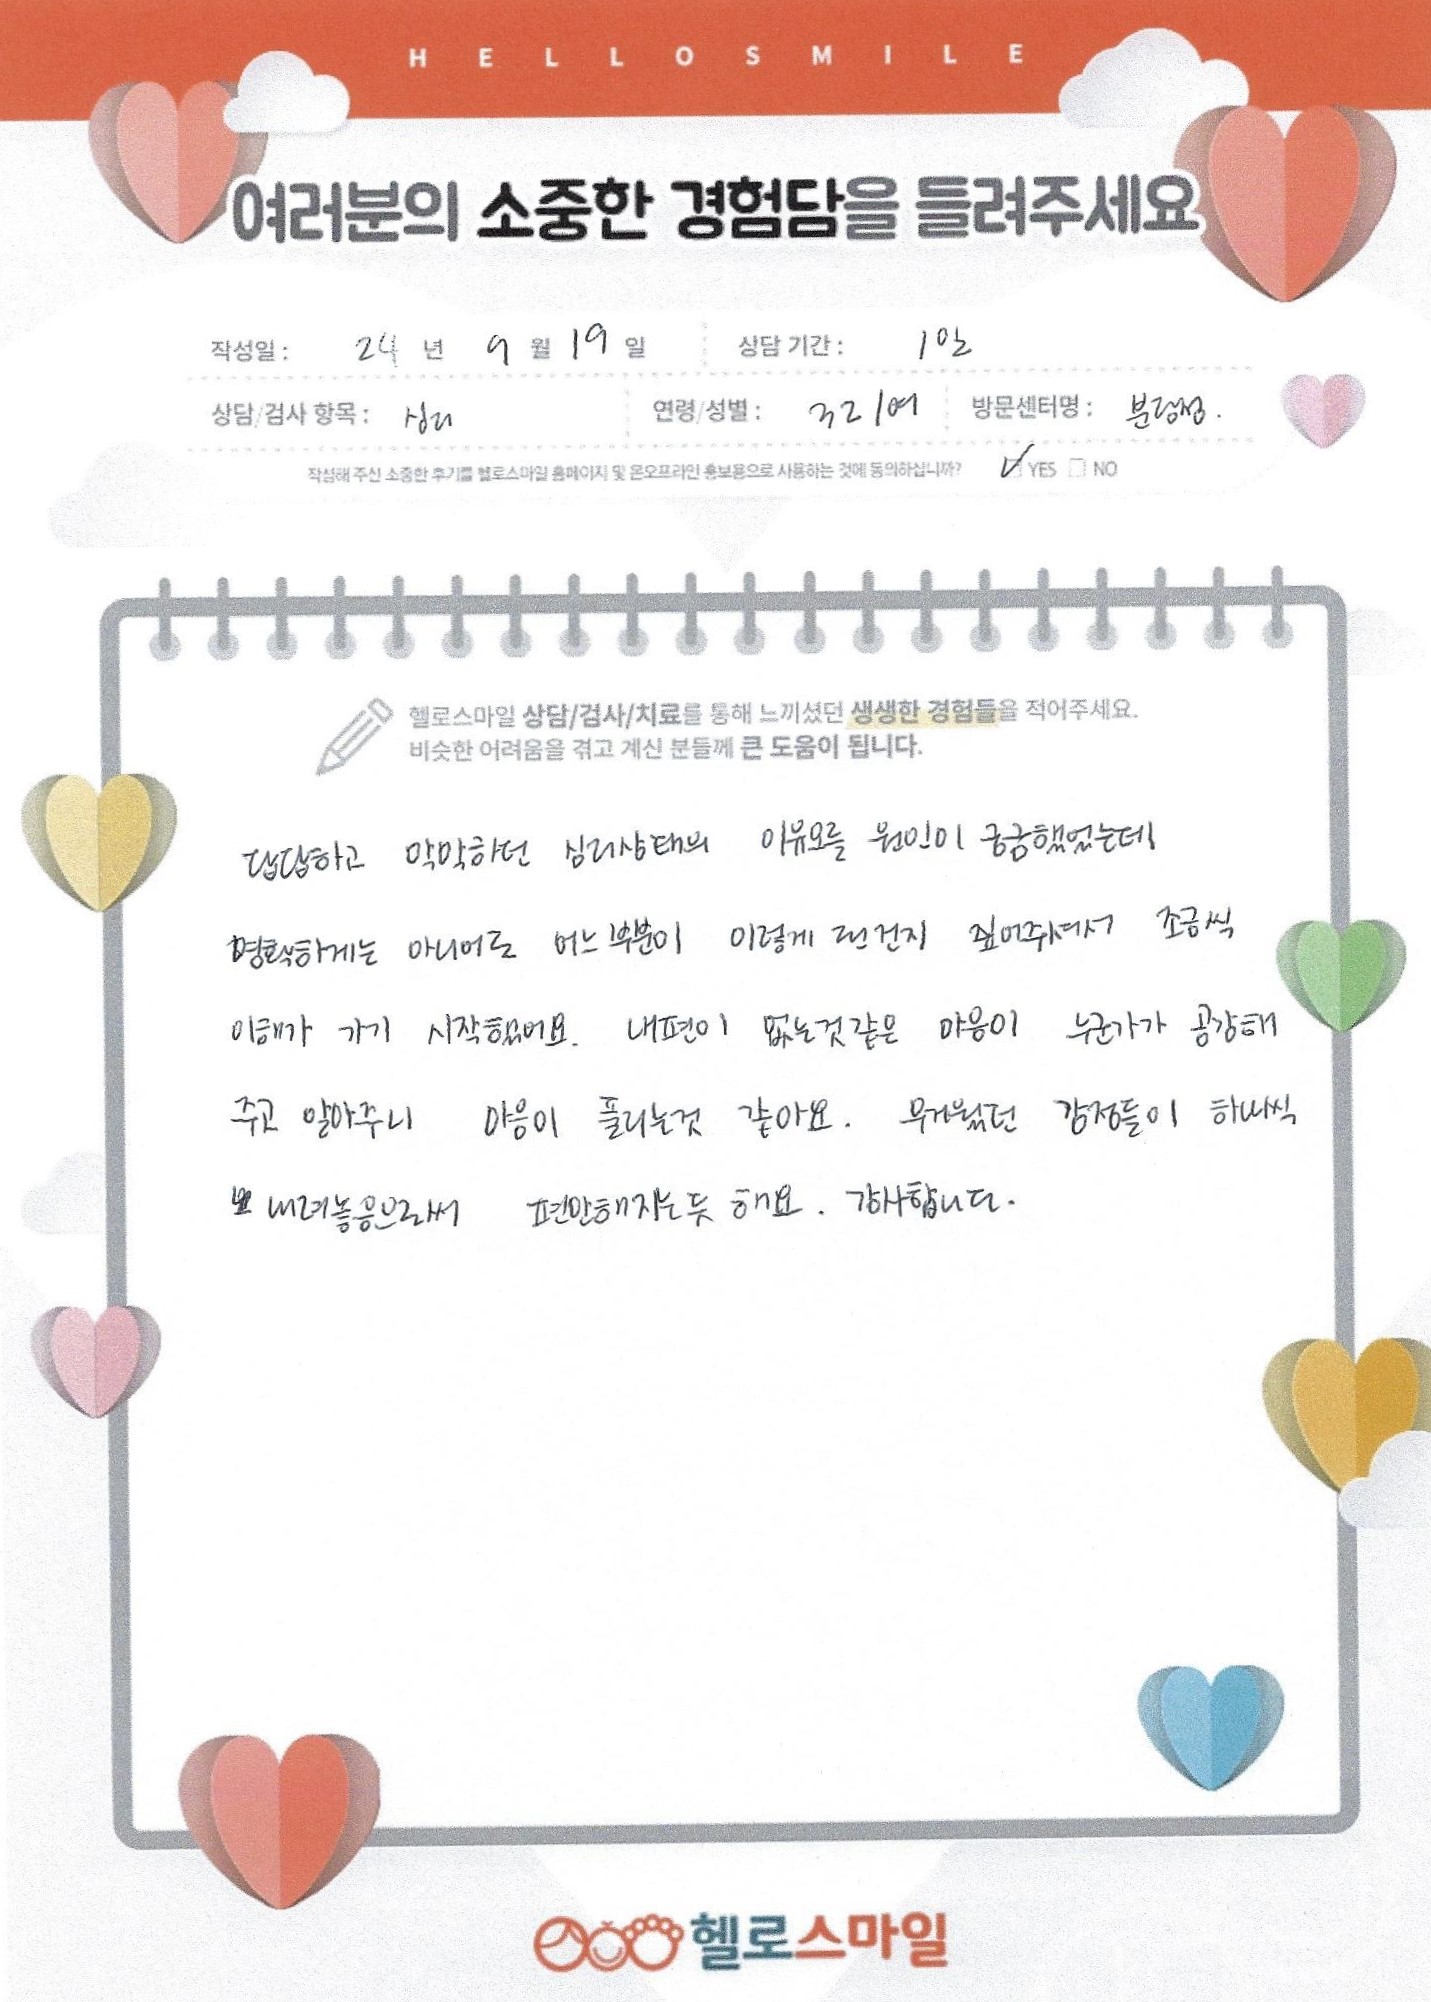 HELLOSMILE
여러분의 소중한 경험담을 들려주세요
작성일 : 24 년 9 월 19 일 상담 기간 : 1일
상담/검사 항목 : 심리 연령/성별 : 32/여 방문센터명 : 분당점.
작성해 주신 소중한 후기를 헬로스마일 홈페이지 및 온오프라인 홍보용으로 사용하는 것에 동의하십니까? YES NO
헬로스마일 상담/검사/치료를 통해 느끼셨던 생생한 경험들을 적어주세요.
비슷한 어려움을 겪고 계신 분들께 큰 도움이 됩니다.
답답하고 막막하던 심리상태의 원인이 궁금했었는데
명확하게는 아니어도 어느 부분이 이렇게 된건지 짚어주셔서 조금씩
이해가 가기 시작했어요. 내편이 없는것같은 마음이 누군가가 공감해
주고 알아주니 마음이 풀리는것 같아요. 무거웠던 감정들이 하나씩
내려놓음으로써 편안해지는듯 해요. 감사합니다.
헬로스마일